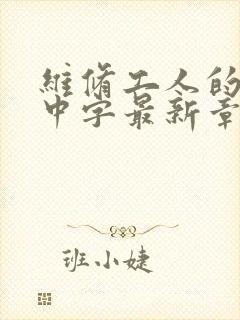 維修工人的
中字最新章
班小婕